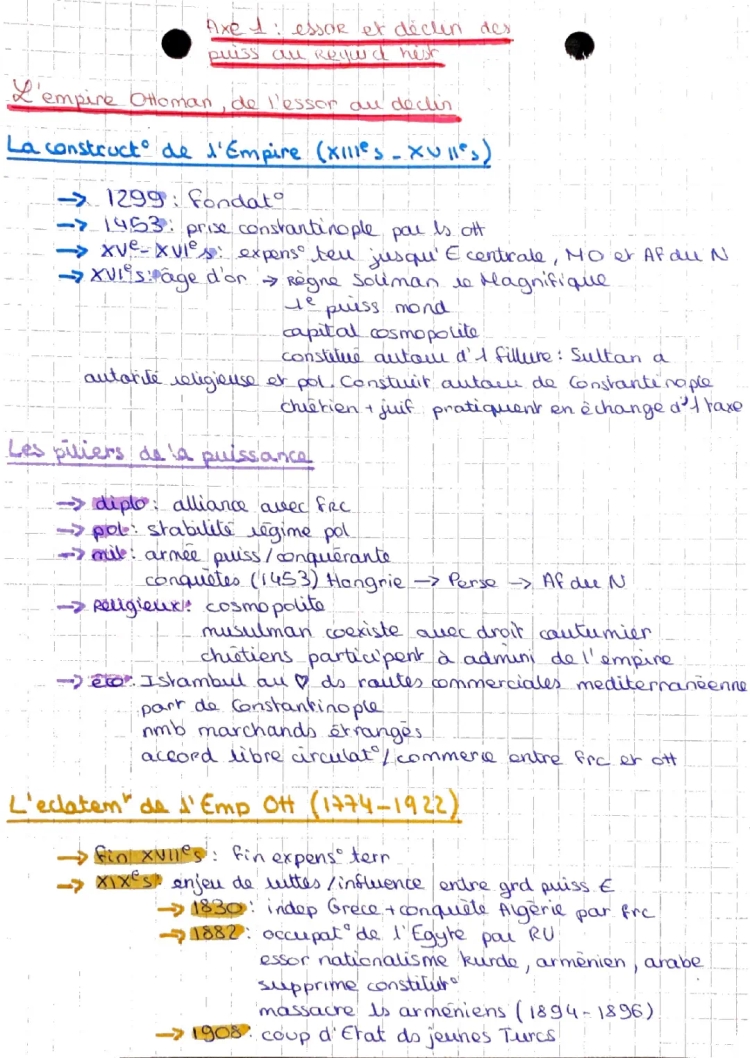 Axe 1 : essor et déclin des
puiss au regard hist
L'empire Ottoman, de l'essor au déclin
La construct° de l'Empire (XIIIe s - XVIIe s)
→ 1299 : fondat°
→ 1453 : prise constantinople par ls ott
→ XVe - XVIe s : expens° terr jusqu'E centrale, MO et Af du N
→ XVIe s : âge d'or → Règne Soliman le Magnifique
1e puiss mond
capital cosmopolite
constitué autour d'1 fillure : Sultan a
autorité religieuse et pol. Construit autour de Constantinople
chrétien + juif pratiquent en échange d'1 taxe
Les piliers de la puissance
→ diplo : alliance avec frc
→ pol : stabilité régime pol
→ mil : armée puiss/conquérante
conquêtes (1453) Hongrie → Perse → Af du N
→ Religieux : cosmopolite
musulman coexiste avec droit coutumier
chrétiens participent à admini de l'empire
→ éco : Istambul au ♡ ds routes commerciales mediterranéenne
port de Constantinople
nmb marchands étrangés
accord libre circulat°/commerce entre frc et ott
L'eclatemt de l'Emp Ott (1774-1922)
→ fin XVIIe s : fin expens° terr
→ XIXe s : enjeu de luttes/influence entre grd puiss €
→ 1830 : indep Grèce + conquête Algérie par frc
→ 1882 : occupat° de l'Egyte par RU
essor nationalisme kurde, arménien, arabe
supprime constitut°
massacre ls arméniens (1894-1896)
→ 1908 : coup d'Etat ds jeunes Turcs